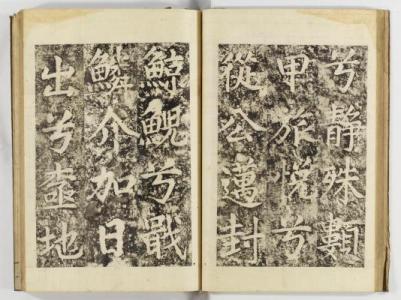 兮靜殊類
甲旅悅兮
從公邁封
鯨鯢兮戢
鱗介加日
出兮盡地